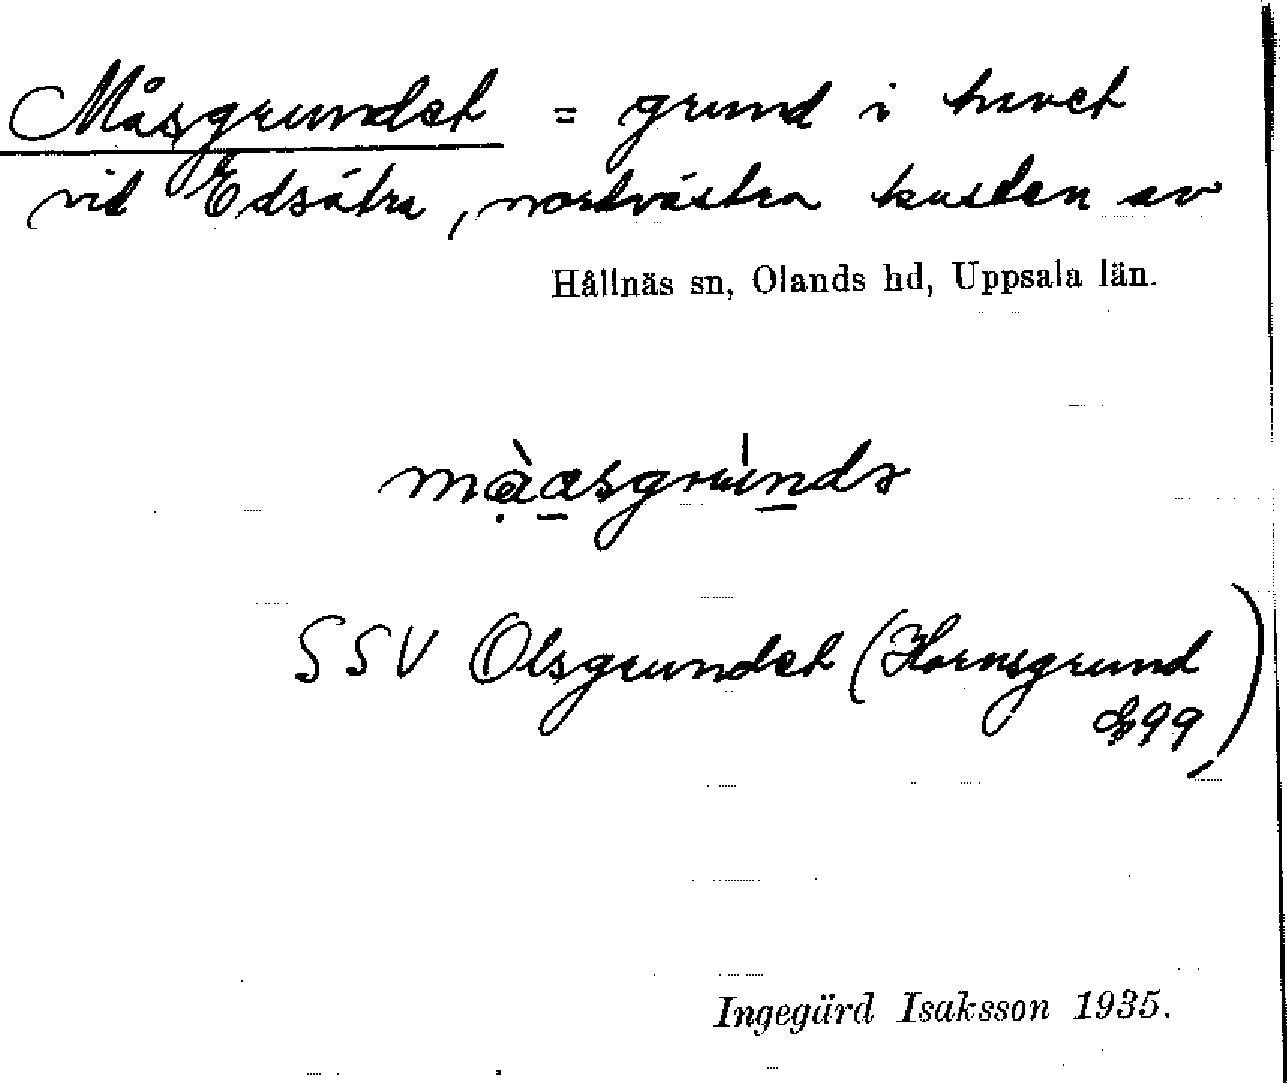 Måsgrundet = grund i havet
vid Edsätra, nordvästra kusten av
Hållnäs sn, Olands hd, Uppsala län.
SSV Olsgrundet (Hornsgrund
99)
Ingegärd Isaksson 1935.